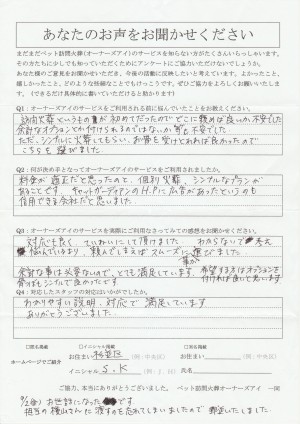 あなたのお声をお聞かせください
まだまだペット訪問火葬(オーナーズアイ)のサービスを知らない方がたくさんいらっしゃいます。
その方たちに少しでも知っていただくためにアンケートにご協力いただけないでしょうか。
あなた様のご意見をお聞かせいただき、今後の活動に反映したいと考えています。よかったこと、
嬉しかったこと、どのような些細なことでもけっこうです。ぜひご協力をよろしくお願いいたします。
(できるだけ具体的に書いていただけると助かります!)
Q1:オーナーズアイのサービスをご利用される前に悩んでいたことをお教えください。
訪問火葬というもの が初めてだったのでどこに頼めば良いか不安でした
余計なオプションとか付けられるのではないか 等も不安でした
ただ、シンプルに火葬してもらい、お骨を受けとれれば良かったので
こちらを選びました
Q2:何が決め手となってオーナーズアイのサービスをご利用されましたか。
料金が適正だと思ったのと、個別火葬、シンプルなプランが
あることです キャットガーディアンのH.Pに広告があったというのも
信用できる会社だと思いました
Q3:オーナーズアイのサービスを実際にご利用なさってみての感想をお聞かせください。
対応も良く ていねいにして頂けました わからない
悩んでいるより、頼んでしまえば スムーズに運びました
余計な事は必要ないので、とても満足しています。希望する方はオプションを
骨つぼもシンプルで良かったです 付ければ良いと思います
Q4:対応したスタッフの対応はいかがでしたか。
わかりやすい説明、対応で満足しています
ありがとうございました。
□匿名掲載 □イニシャル掲載 □実名掲載
お住まい (例:中央区) お住まい (例:中央区)
ホームページでご紹介
イニシャル S.K (例:T.Y) 氏名
ご協力、本当にありがとうございました。 ペット訪問火葬オーナーズアイ 一同
9/2(金)お世話になった です。
担当の横山さんに渡すのを忘れてしまいましたので 郵送いたしました